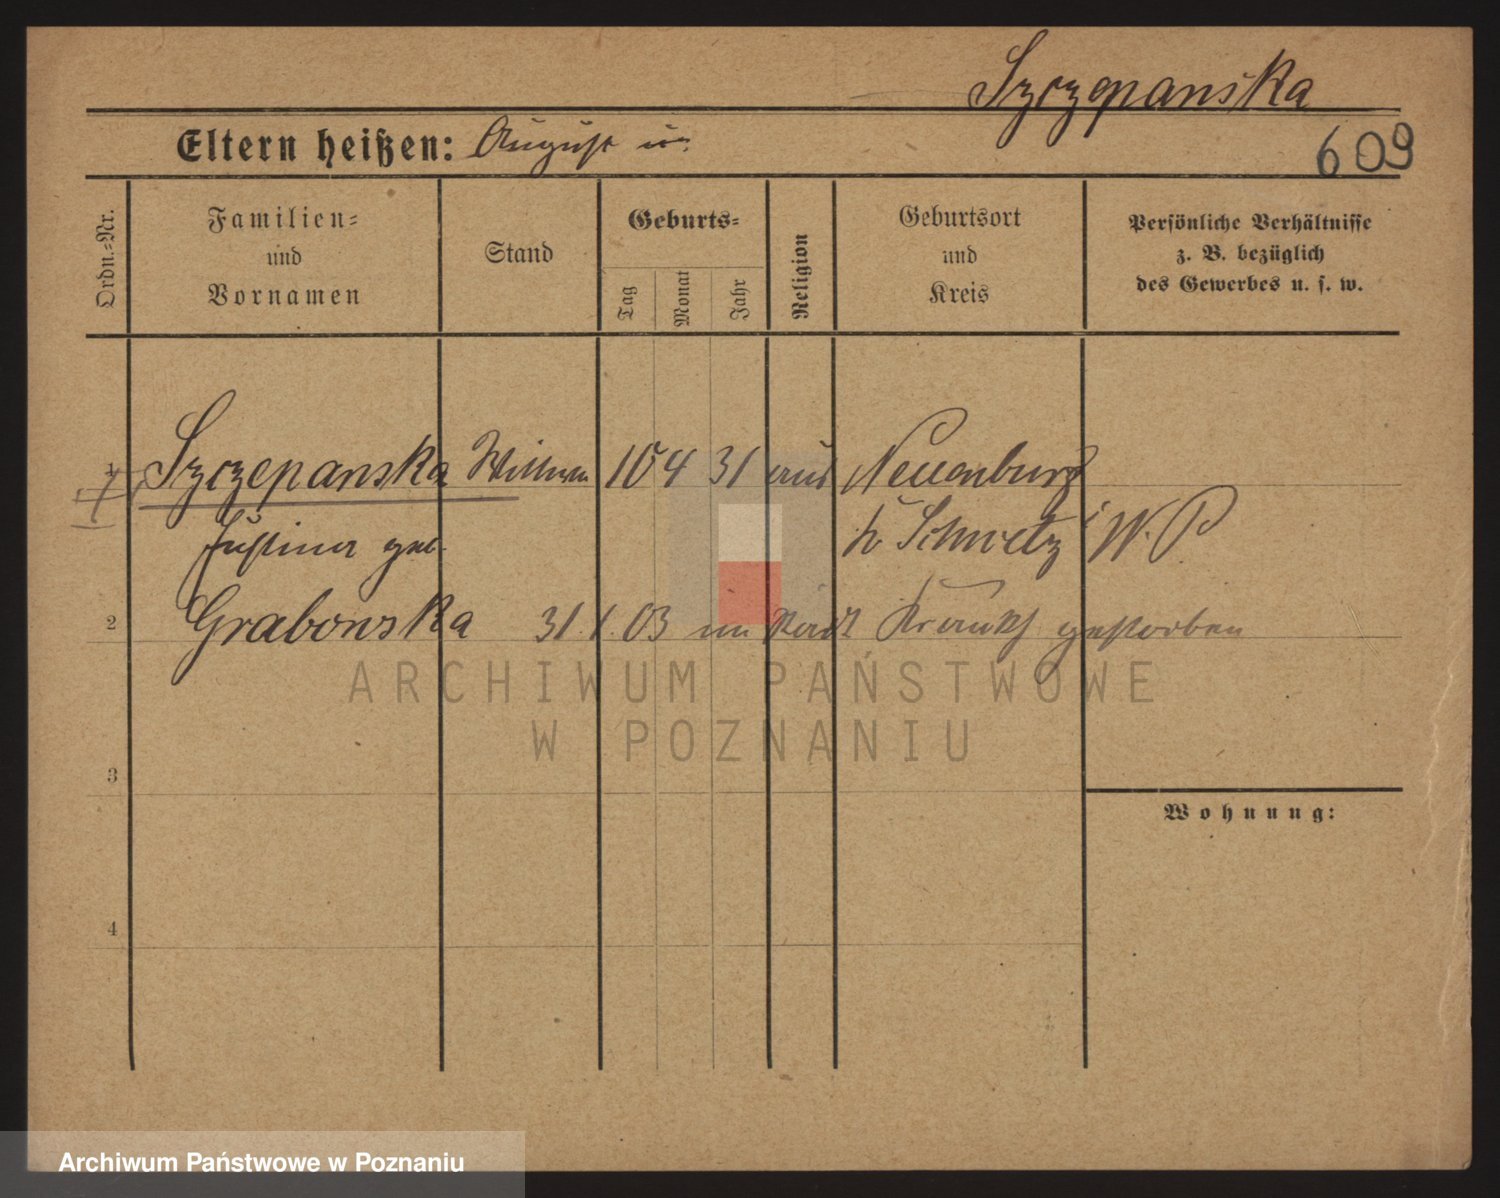 Szczepanska
Eltern heißen: August u.
609
Ordn.-Nr.
Familien-
und
Vornamen
Stand
Geburts-
Tag
Monat
Jahr
Religion
Geburtsort
und
Kreis
Persönliche Verhältnisse
z. B. bezüglich
des Gewerbes u. s. w.
1 Szczepanska Wittwe 10 4 31 Neuenburg
Justina geb. Kr Schwetz i W. P.
2 Grabowska 31. 1. 03 im Stadt Krankh gestorben
ARCHIWUM PAŃSTWOWE
W POZNANIU
3
Wohnung:
4
Archiwum Państwowe w Poznaniu